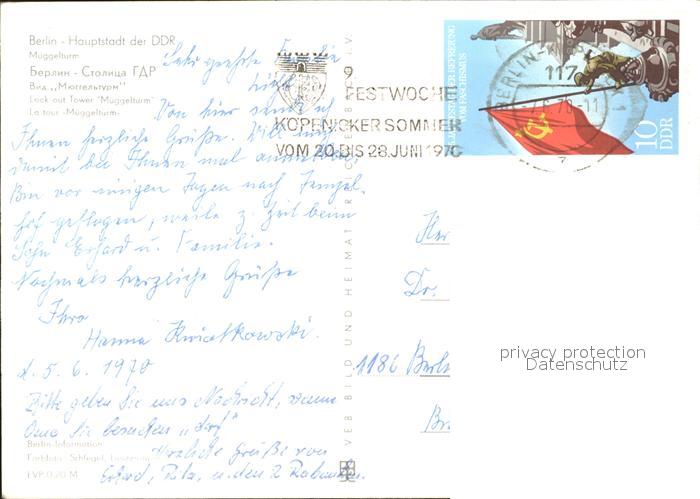 Berlin - Hauptstadt der DDR
Müggelturm
Берлин - Столица ГДР
Вид „Мюггельтурм"
Look out Tower "Müggelturm"
La tour «Müggelturm»
Sehr geehrte Familie
Von hier sende ich
Ihnen herzliche Grüße. Will mich
damit bei Ihnen mal anmelden.
Bin vor einigen Tagen nach Tempel-
hof geflogen, weile z. Zeit beim
Sohn Erhard u. Familie.
Nochmals herzliche Grüße
Ihre
Hanna Kwiatkowski.
d. 5. 6. 1970
Bitte geben Sie uns Nachricht, wann
Oma Sie besuchen „darf"
Herzliche Grüße von
Erhard, u. den 2 Rabauken.
Berlin-Information
Farbfoto: Schlegel,
EVP 0,20 M
VEB BILD UND HEIMAT REICHENBACH I. V.
9.
FESTWOCHE
KÖPENICKER SOMMER
VOM 20. BIS 28. JUNI 1970
117
BERLIN
BEFREIUNG
VOM FASCHISMUS
10
DDR
Her
Dr.
1186 Berli
Br
privacy protection
Datenschutz